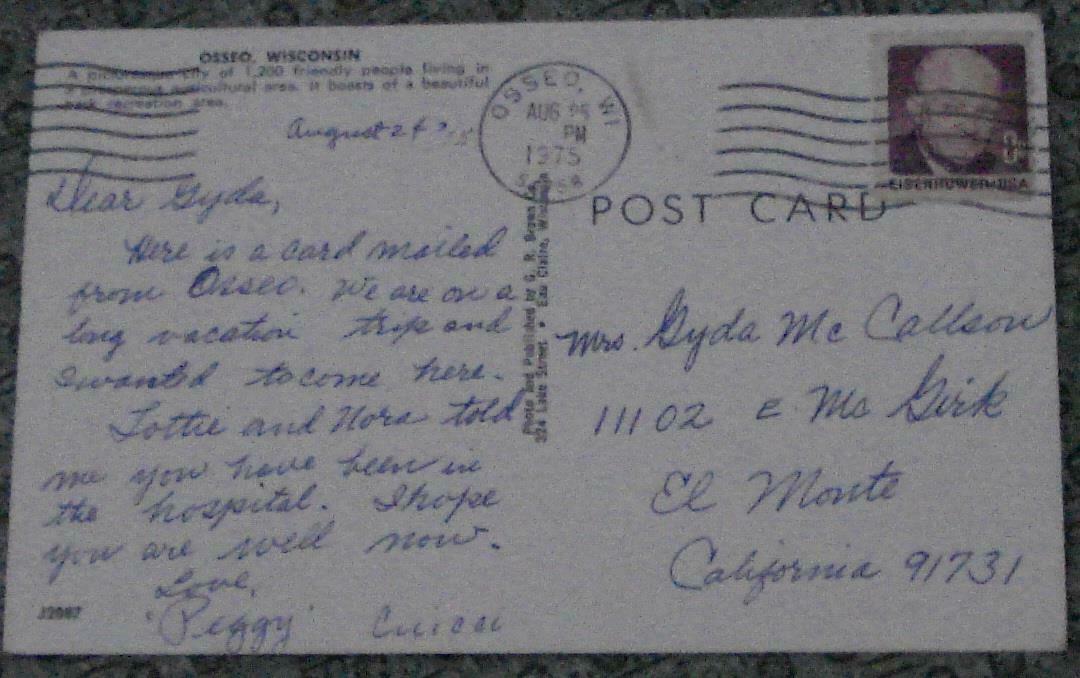 OSSEO, WISCONSIN
A progressive city of 1,200 friendly people living in
a prosperous agricultural area. It boasts of a beautiful
park recreation area.
August 24
OSSEO, WI
AUG 25
PM
1975
EISENHOWER·USA
POST CARD
Dear Gyda,
Here is a card mailed
from Osseo. We are on a
long vacation trip and
I wanted to come here.
Lottie and Nora told
me you have been in
the hospital. I hope
you are well now.
Love,
Peggy
32987
Photo and Published by G. R. Brown Co.
324 Lake Street • Eau Claire, Wisconsin
Mrs. Gyda Mc Callson
11102 E Mc Girk
El Monte
California 91731